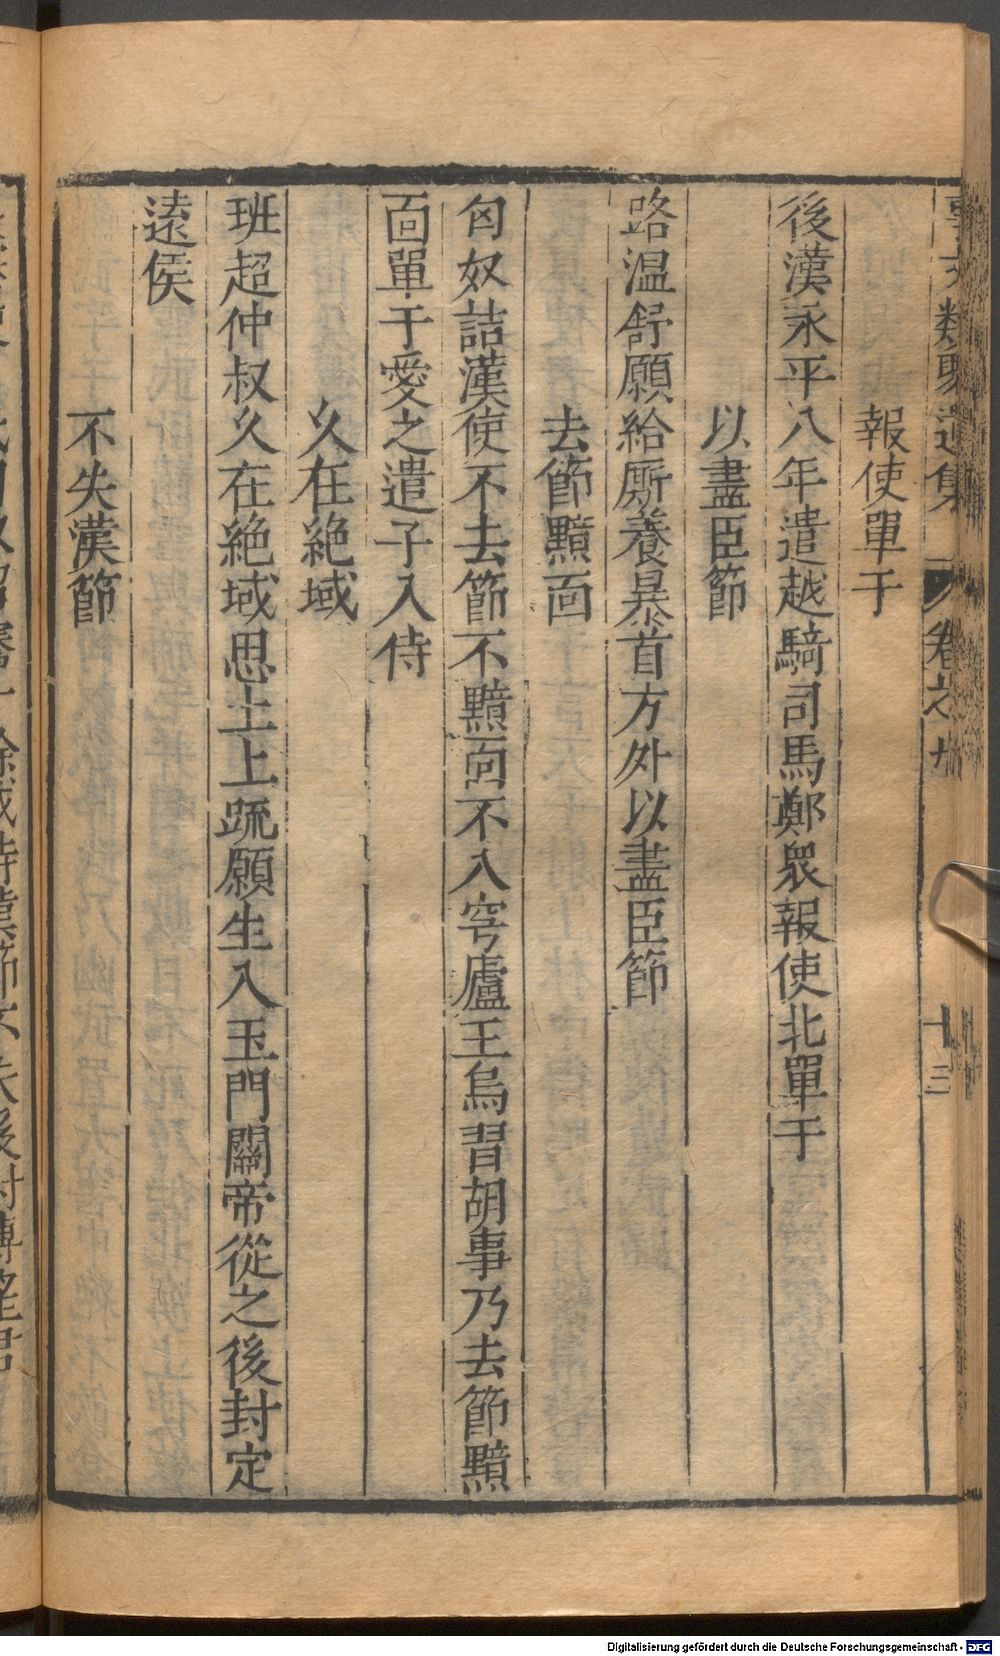 類聚遺集 卷之十 十三
報使單于
後漢永平八年遣越騎司馬鄭衆報使北單于
以盡臣節
路温舒願給厮養暴首方外以盡臣節
去節黥靣
匈奴詰漢使不去節不黥靣不入穹廬王烏習胡事乃去節黥
靣單于愛之遣子入侍
久在絶域
班超仲叔久在絶域思土上疏願生入玉門關帝從之後封定
遠侯
不失漢節
持漢節不失後封博望
Digitalisierung gefördert durch die Deutsche Forschungsgemeinschaft - DFG